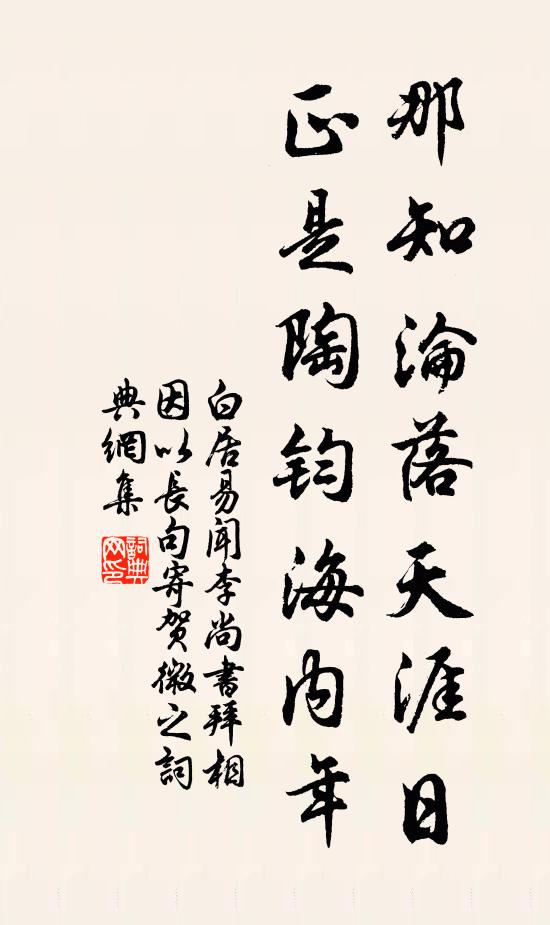 那知淪落天涯日
正是陶鈞海内年
白居易聞李尚書拜相
因以長句寄賀微之詞
典網集
詞典
网印